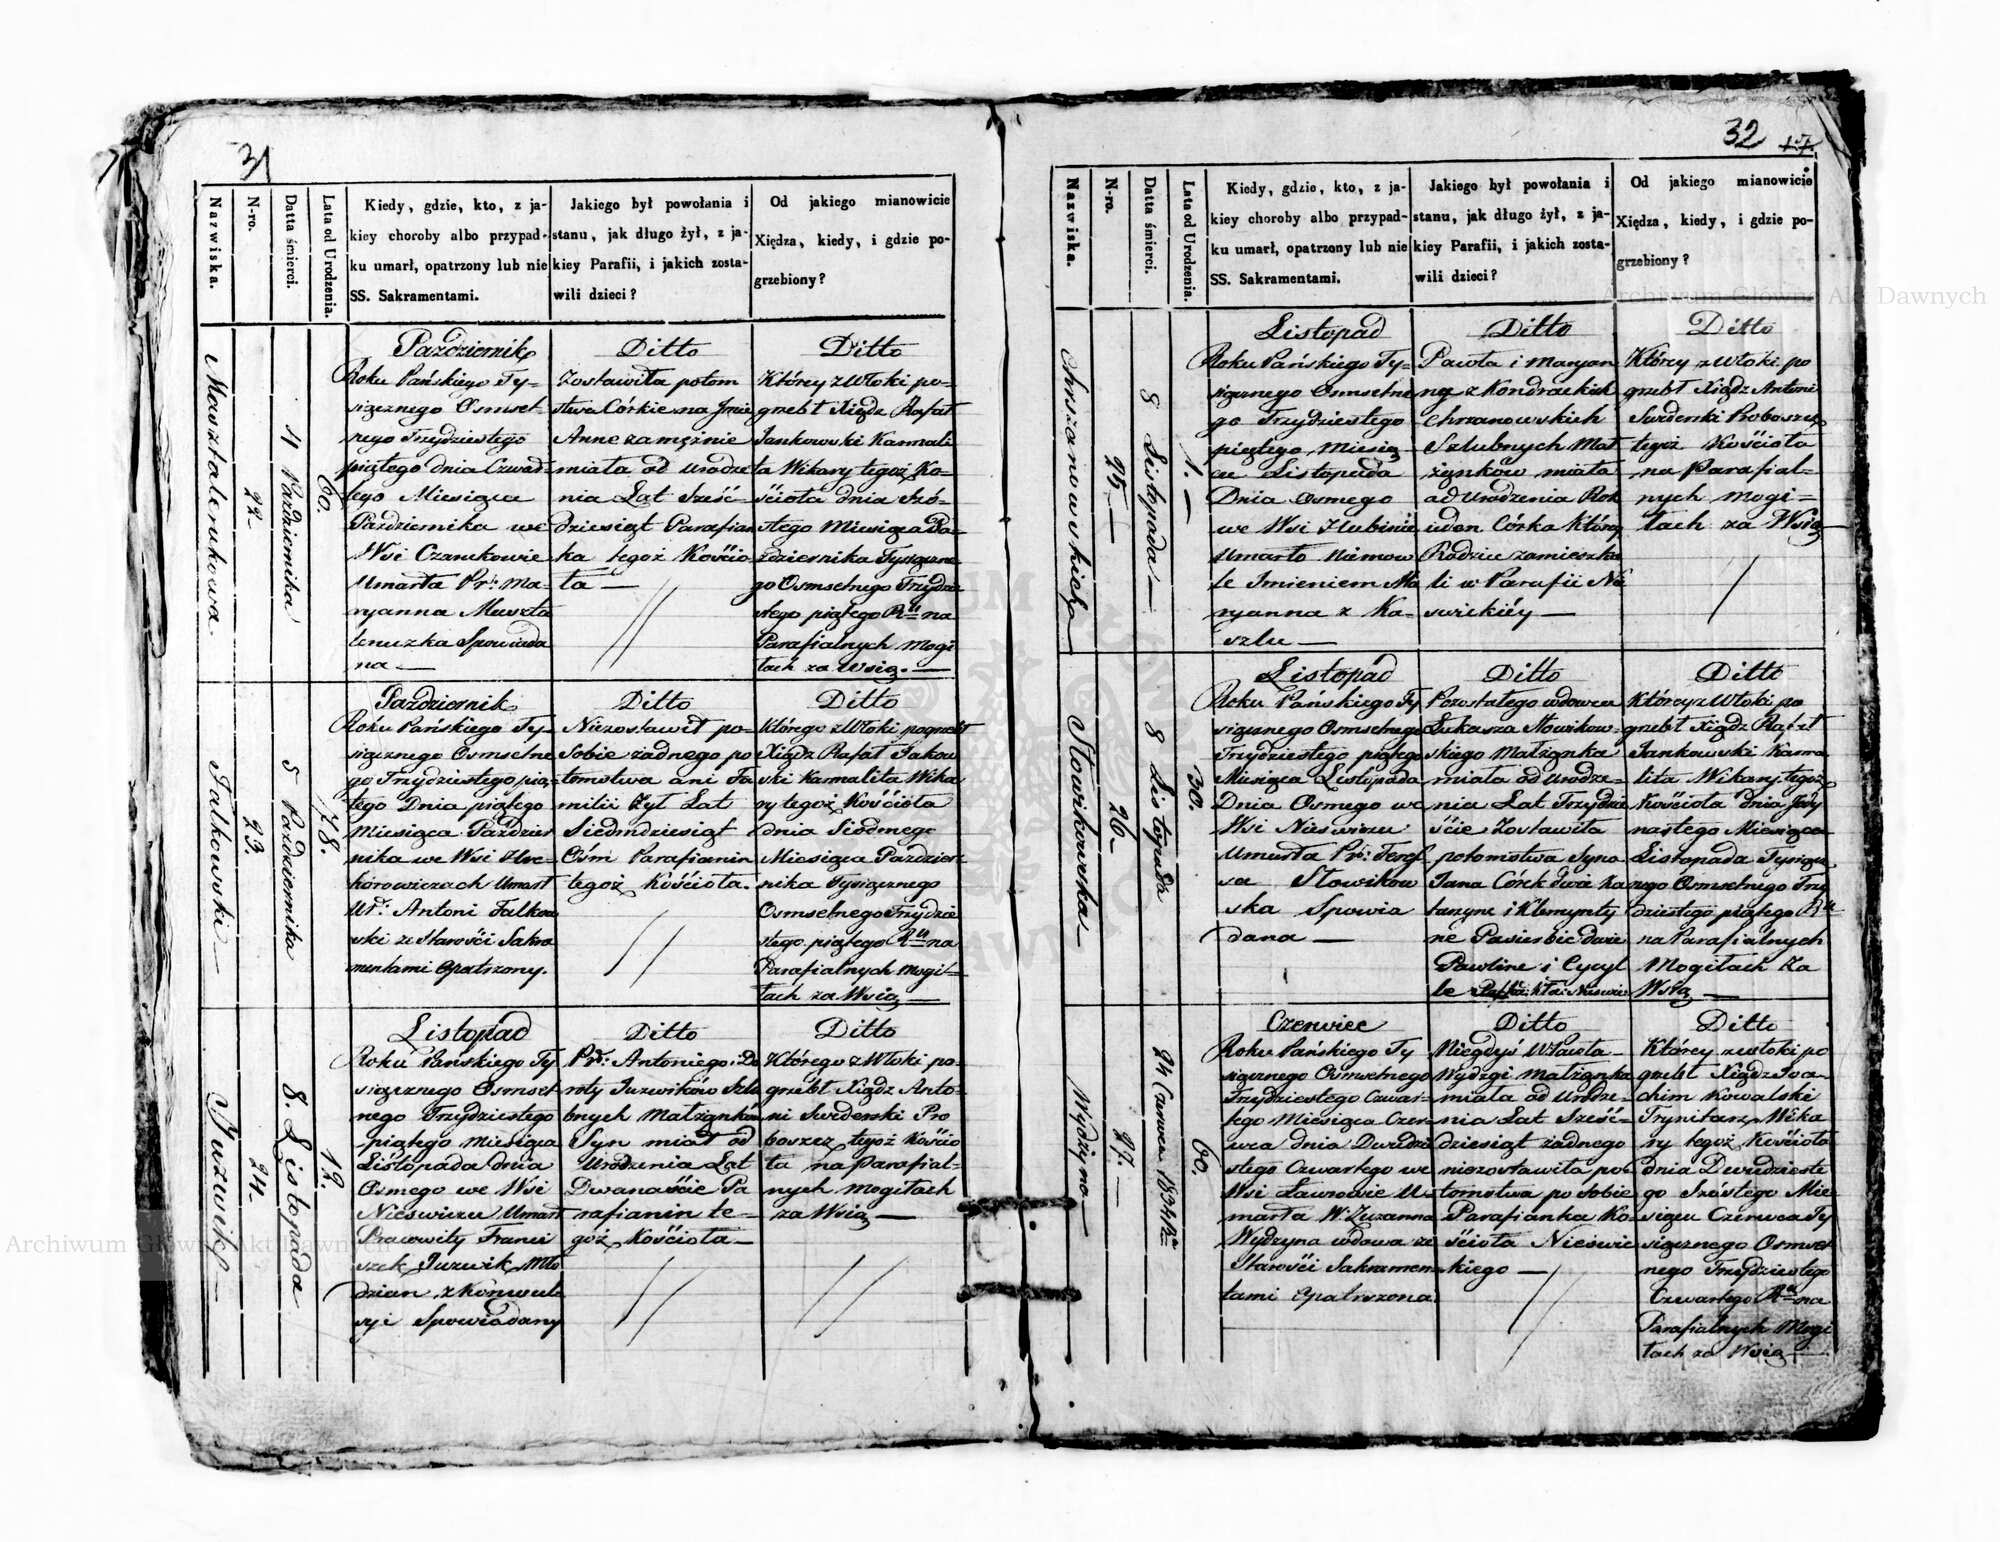 31
Nazwiska.
N-ro.
Datta śmierci.
Lata od Urodzenia.
Kiedy, gdzie, kto, z ja-
kiey choroby albo przypad-
ku umarł, opatrzony lub nie
SS. Sakramentami.
Jakiego był powołania i
stanu, jak długo żył, z ja-
kiey Parafii, i jakich zosta-
wili dzieci?
Od jakiego mianowicie
Xiędza, kiedy, i gdzie po-
grzebiony?
22
4 Pazdziernika
60.
Pazdziernik
Roku Pańskiego Ty-
sięcznego Osmset-
nego Trzydziestego
piątego dnia Czwar-
tego Miesiąca
Pazdziernika we
Wsi Czarukowie
Umarła Pr: Ma-
ryanna Muszta
lenuzka Spowiada
na —
Ditto
Zostawiła potom
stwa Córkie na Jmie
Anne zamężnie
miała od urodze
nia Lat Sześć-
dziesiąt Parafian
ka tegoż Kościo-
ła —
Ditto
Którey zwłoki po-
grzebł Xiądz Rafał
Jankowski Karmeli
ta Wikary tegoż Ko-
ścioła dnia Szó-
stego Miesiąca Pa-
ździernika Tysięczne
go Osmsetnego Trzydzie
stego piątego Ru na
Parafialnych Mogi
łach za Wsią. —
Falkowski —
23.
5 Pazdziernika
78.
Pazdziernik
Roku Pańskiego Ty-
sięcznego Osmsetne
go Trzydziestego pią-
tego Dnia piątego
Miesiąca Paździer
nika we Wsi
Umarł
Ur: Antoni Falkow
ski ze Starości Sakra
mentami Opatrzony.
Ditto
Niezostawił po-
Sobie żadnego po
tomstwa ani Fa
milii Żył Lat
Siedmdziesiąt
Ośm Parafianin
tegoż Kościoła.
Ditto
Którego zwłoki pogrzebł
Xiądz Rafał Jakow
ski Karmalita Wika
ry tegoż Kościoła
dnia Siódmego
Miesiąca Paździer
nika Tysięcznego
Osmsetnego Trzydzie
stego piątego Ru na
Parafialnych Mogi-
łach za Wsią —
Juzwik —
24.
8. Listopada
12.
Listopad
Roku Pańskiego Ty
sięcznego Osmset
nego Trzydziestego
piątego Miesiąca
Listopada dnia
Osmego we Wsi
Nieswiezu Umarł
Pracowity Franci
szek Juzwik Mło
dzian z Konwul
syi Spowiadany
Ditto
Pr: Antoniego i Do
roty Juzwików Szlu
bnych Małżonków
Syn miał od
Urodzenia Lat
Dwanaście Pa
rafianin te-
goż Kościoła —
Ditto
Którego zwłoki po-
grzebł Xiądz Anto-
ni Swiderski Pro
boszcz tegoż Kościo
ła na Parafial-
nych Mogiłach
za Wsią —
32
17.
Nazwiska.
N-ro.
Datta śmierci.
Lata od Urodzenia.
Kiedy, gdzie, kto, z ja-
kiey choroby albo przypad-
ku umarł, opatrzony lub nie
SS. Sakramentami.
Jakiego był powołania i
stanu, jak długo żył, z ja-
kiey Parafii, i jakich zosta-
wili dzieci?
Od jakiego mianowicie
Xiędza, kiedy, i gdzie po-
grzebiony?
Chrzanowskich
25 —
8 Listopada —
1. —
Listopad
Roku Pańskiego Ty-
sięcznego Osmsetne
go Trzydziestego
piątego Miesią
ca Listopada
Dnia Osmego
we Wsi
Umarło niemow
le Imieniem Ma
ryanna z Ka-
szlu —
Ditto
Pawła i Maryan
ny z Kondrackich
Chrzanowskich
Szlubnych Mał
żonków miała
od Urodzenia Rok
jeden Córka Który
Rodzice zamieszka
li w Parafii Nie
swickiéy —
Ditto
Którey zwłoki po
grzebł Xiądz Antoni
Swiderski Proboszcz
tegoż Kościoła
na Parafial-
nych Mogi-
łach za Wsią
Słowikowska —
26.
8 Listopada
30.
Listopad
Roku Pańskiego Ty
sięcznego Osmsetnego
Trzydziestego piątego
Miesiąca Listopada
Dnia Osmego we
Wsi Nieswiezu
Umarła Pr: Teref
sa Słowikow
ska Spowia
dana —
Ditto
Pozostałego wdowca
Łukasza Słowikow-
skiego Małżonka
miała od Urodze-
nia Lat Trzydzie
ście Zostawiła
potomstwa Syna
Jana Córek dwie Ka
tarzyne i Klementy
ne Pasierbic dwie
Pawline i Cycyl
le
Ditto
Którey zwłoki po
grzebł Xiądz Rafał
Jankowski Karma
lita Wikary tegoż
Kościoła dnia Jedy
nastego Miesiąca
Listopada Tysięcz
nego Osmsetnego Trzy
dziestego piątego Ru
na Parafialnych
Mogiłach Za
Wsią —
Wydżyna —
27. —
24 Czerwca 1834 Ro
60.
Czerwiec
Roku Pańskiego Ty
sięcznego Osmsetnego
Trzydziestego Czwar-
tego Miesiąca Czer-
wca dnia Dwudzie
stego Czwartego we
Wsi Ławrowie U-
marła W. Zuzanna
Wydżyna wdowa ze
Starości Sakramen-
tami Opatrzona.
Ditto
Niegdyś Wława
Wydzgi Małżonka
miała od Urodze-
nia Lat Sześć-
dziesiąt żadnego
niezostawiła po-
tomstwa po Sobie
Parafianka Ko-
ścioła Nieświc
kiego —
Ditto
Którey zwłoki po
grzebł Xiądz Joa-
chim Kowalski
Trynitarz Wika
ry tegoż Kościoła
dnia Dwudzieste
go Szóstego Mie-
siąca Czerwca Ty
sięcznego Osmset
nego Trzydziestego
Czwartego Ru na
Parafialnych Mogi
łach za Wsią —
Archiwum Główne Akt Dawnych
Archiwum Główne Akt Dawnych